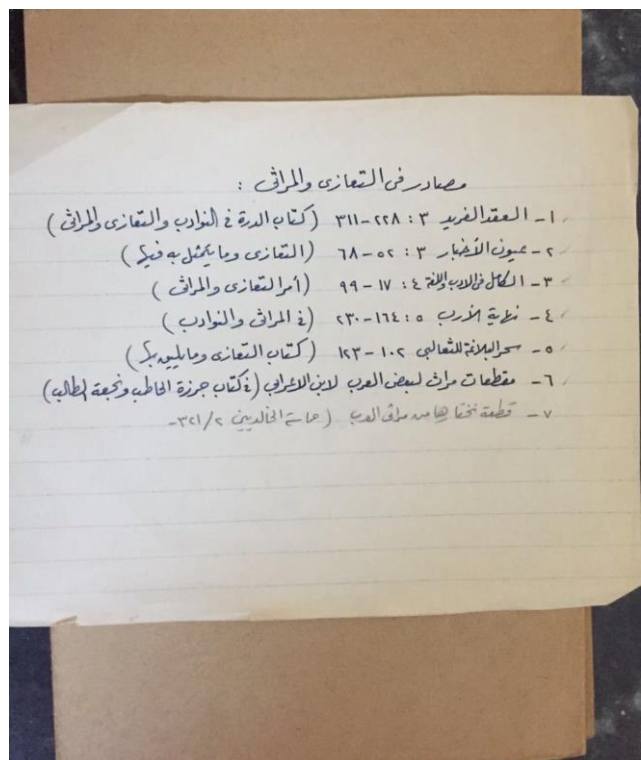 مصادر فى التعازى والمراثى :
١- العقد الفريد ٣ : ٢٢٨-٣١١ (كتاب الدرة فى النوادب والتعازى والمراثى)
٢- عيون الأخبار ٣ : ٥٢-٦٨ (التعازى وما يتمثل به فيها)
٣- الكامل فى الأدب واللغة ٤ : ١٧-٩٩ (أمر التعازى والمراثى)
٤- نهاية الأرب ٥ : ١٦٤-٢٣٠ (فى المراثى والنوادب)
٥- سحر البلاغة للثعالبى ١٠٢-١٢٣ (كتاب التعازى وما يليق بها)
٦- مقطعات مراث لبعض العرب لابن الاعرابى (فى كتاب جرزة الحاطب وتحفة الطالب)
٧- قطعة نختارها من مراثى العرب (حماسة الخالديين ٢/٣٢١-